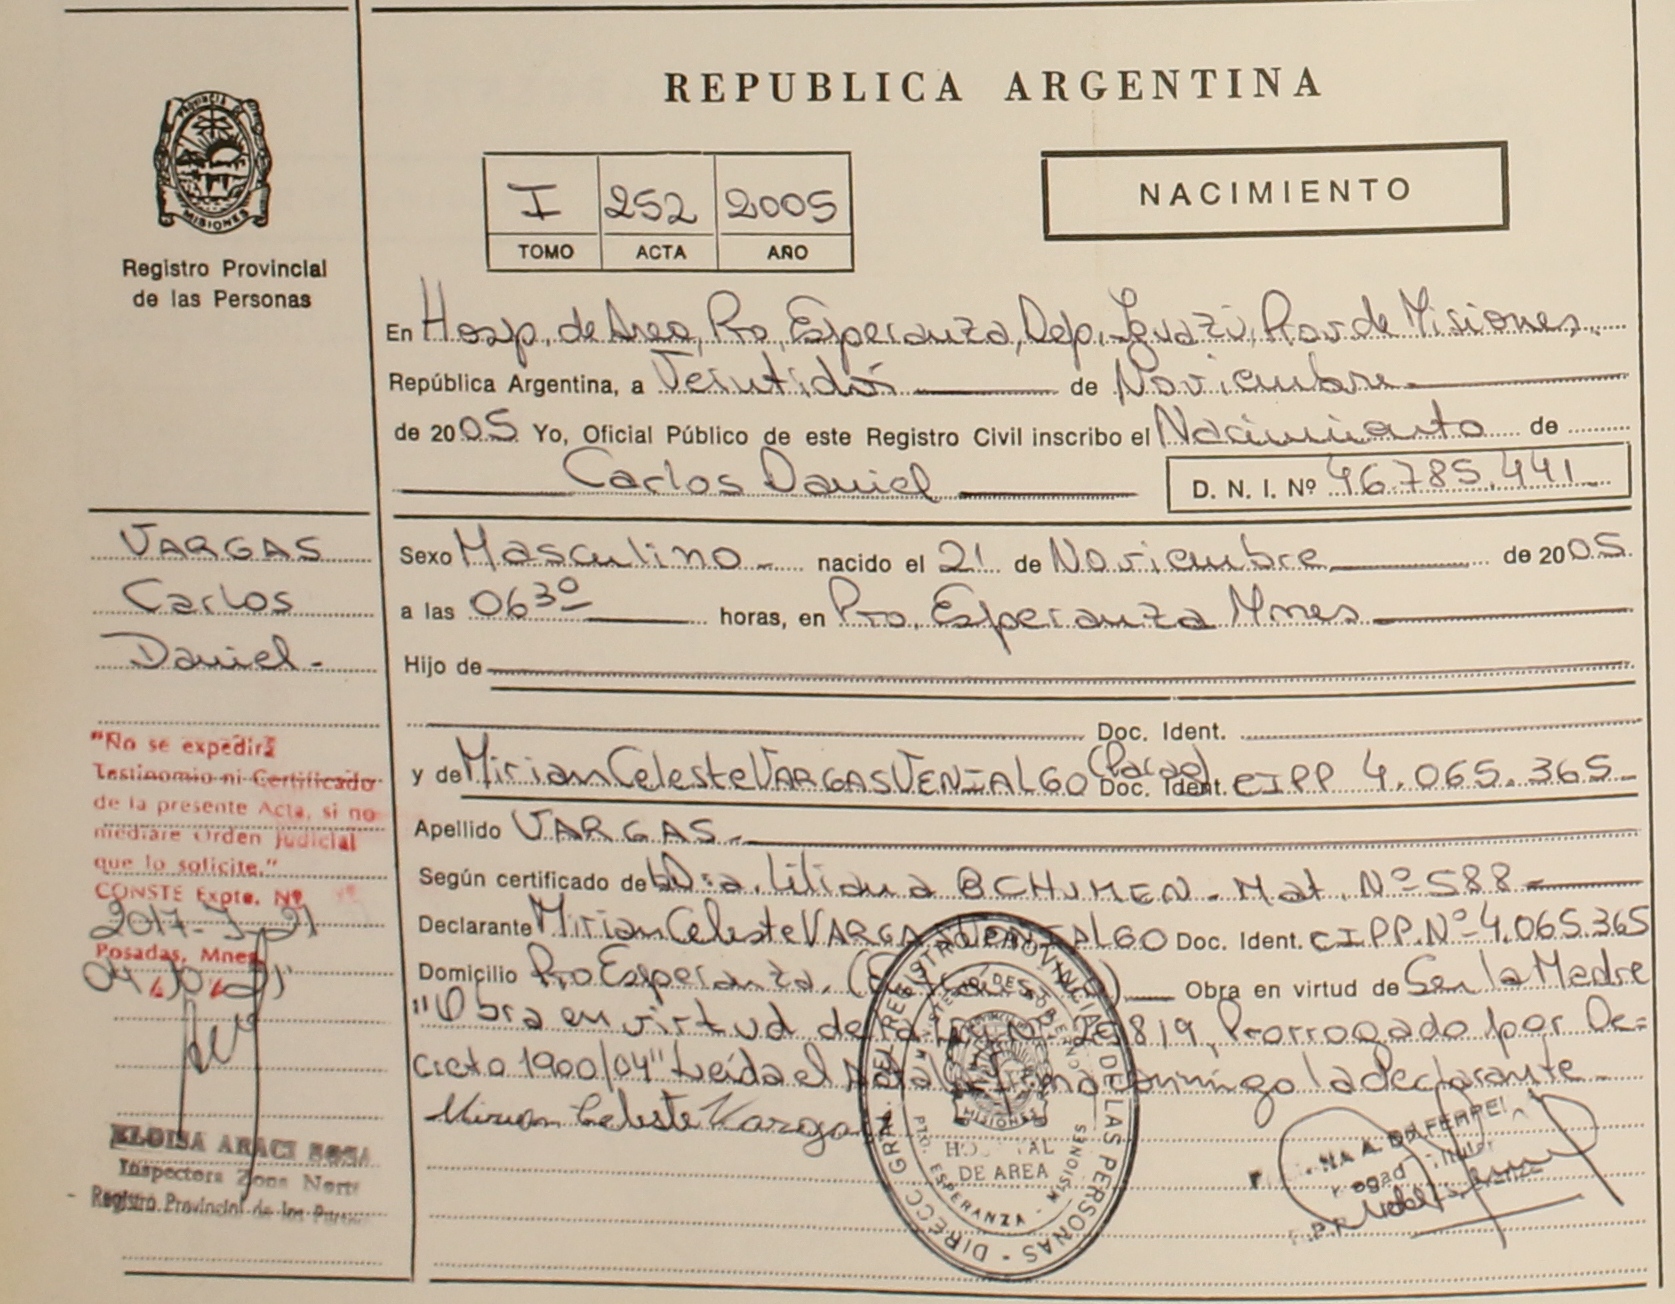 REPUBLICA ARGENTINA
PROVINCIA DE
MISIONES
Registro Provincial
de las Personas
I 252 2005
TOMO ACTA AÑO
NACIMIENTO
En Hosp. de Area, Pto. Esperanza, Dep. Iguazú, Prov. de Misiones.
República Argentina, a Veintidós de Noviembre
de 2005 Yo, Oficial Público de este Registro Civil inscribo el Nacimiento de
Carlos Daniel D. N. I. Nº 46.785.441
VARGAS
Carlos
Daniel.-
Sexo Masculino nacido el 21 de Noviembre de 2005
a las 06 30 horas, en Pto. Esperanza Mnes
Hijo de
Doc. Ident.
y de Mirian Celeste VARGAS VENIALGO (Parag) Doc. Ident. CIPP 4.065.365-
Apellido VARGAS.-
Según certificado de Dra. Liliana Mat. Nº 588
Declarante Mirian Celeste VARGAS VENIALGO Doc. Ident. CIPP. Nº 4.065.365
Domicilio Pto Esperanza. Obra en virtud de Ser la Madre
"Obra en virtud de la Ley nº 25819, Prorrogado por De=
creto 1900/04" Leída el Acta firma conmigo la declarante
Mirian Celeste Vargas
"No se expedirá
Testimonio ni Certificado
de la presente Acta, si no
mediare Orden Judicial
que lo solicite."
CONSTE Expte. Nº
2017-J-21
Posadas, Mnes
ELOISA ARACI SOSA
Inspectora Zona Norte
Registro Provincial de las Personas
DIREC. GRAL. DEL REGISTRO PROVINCIAL DE LAS PERSONAS
MINISTERIO DE GOBIERNO
MISIONES
HOSPITAL
DE AREA
PTO. ESPERANZA - MISIONES